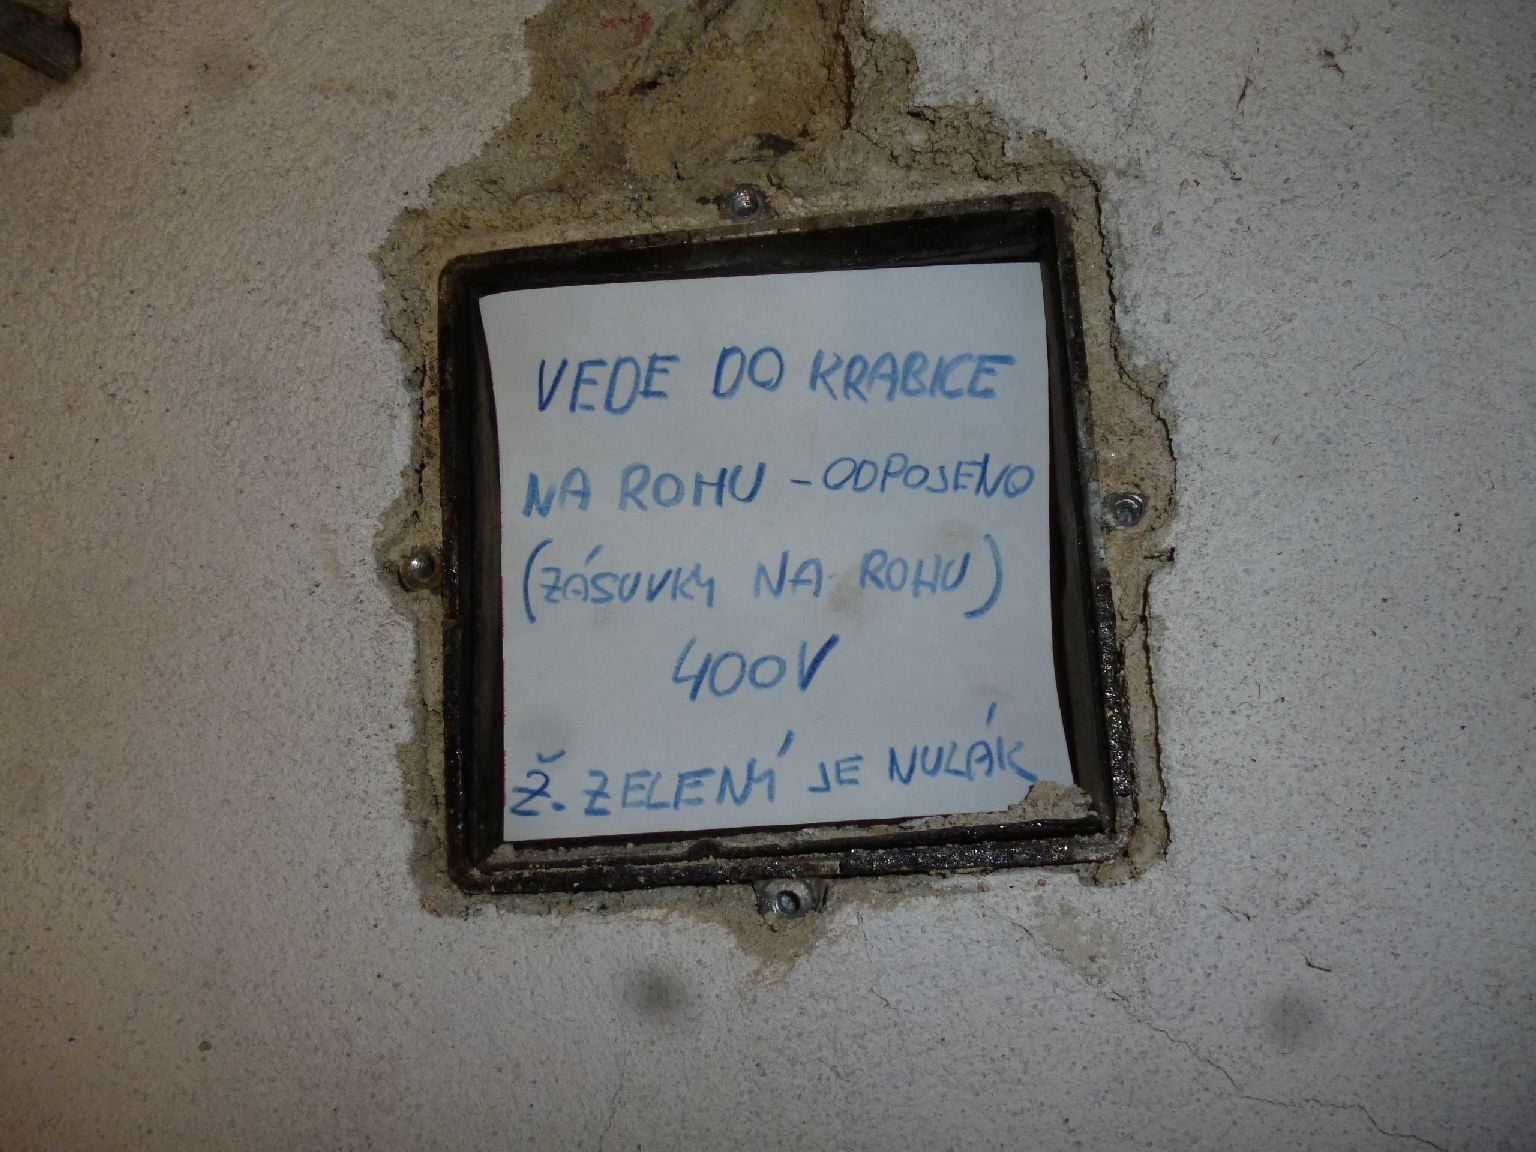 VEDE DO KRABICE
NA ROHU - ODPOJENO
(ZÁSUVKY NA ROHU)
400V
Ž. ZELENÝ JE NULÁK